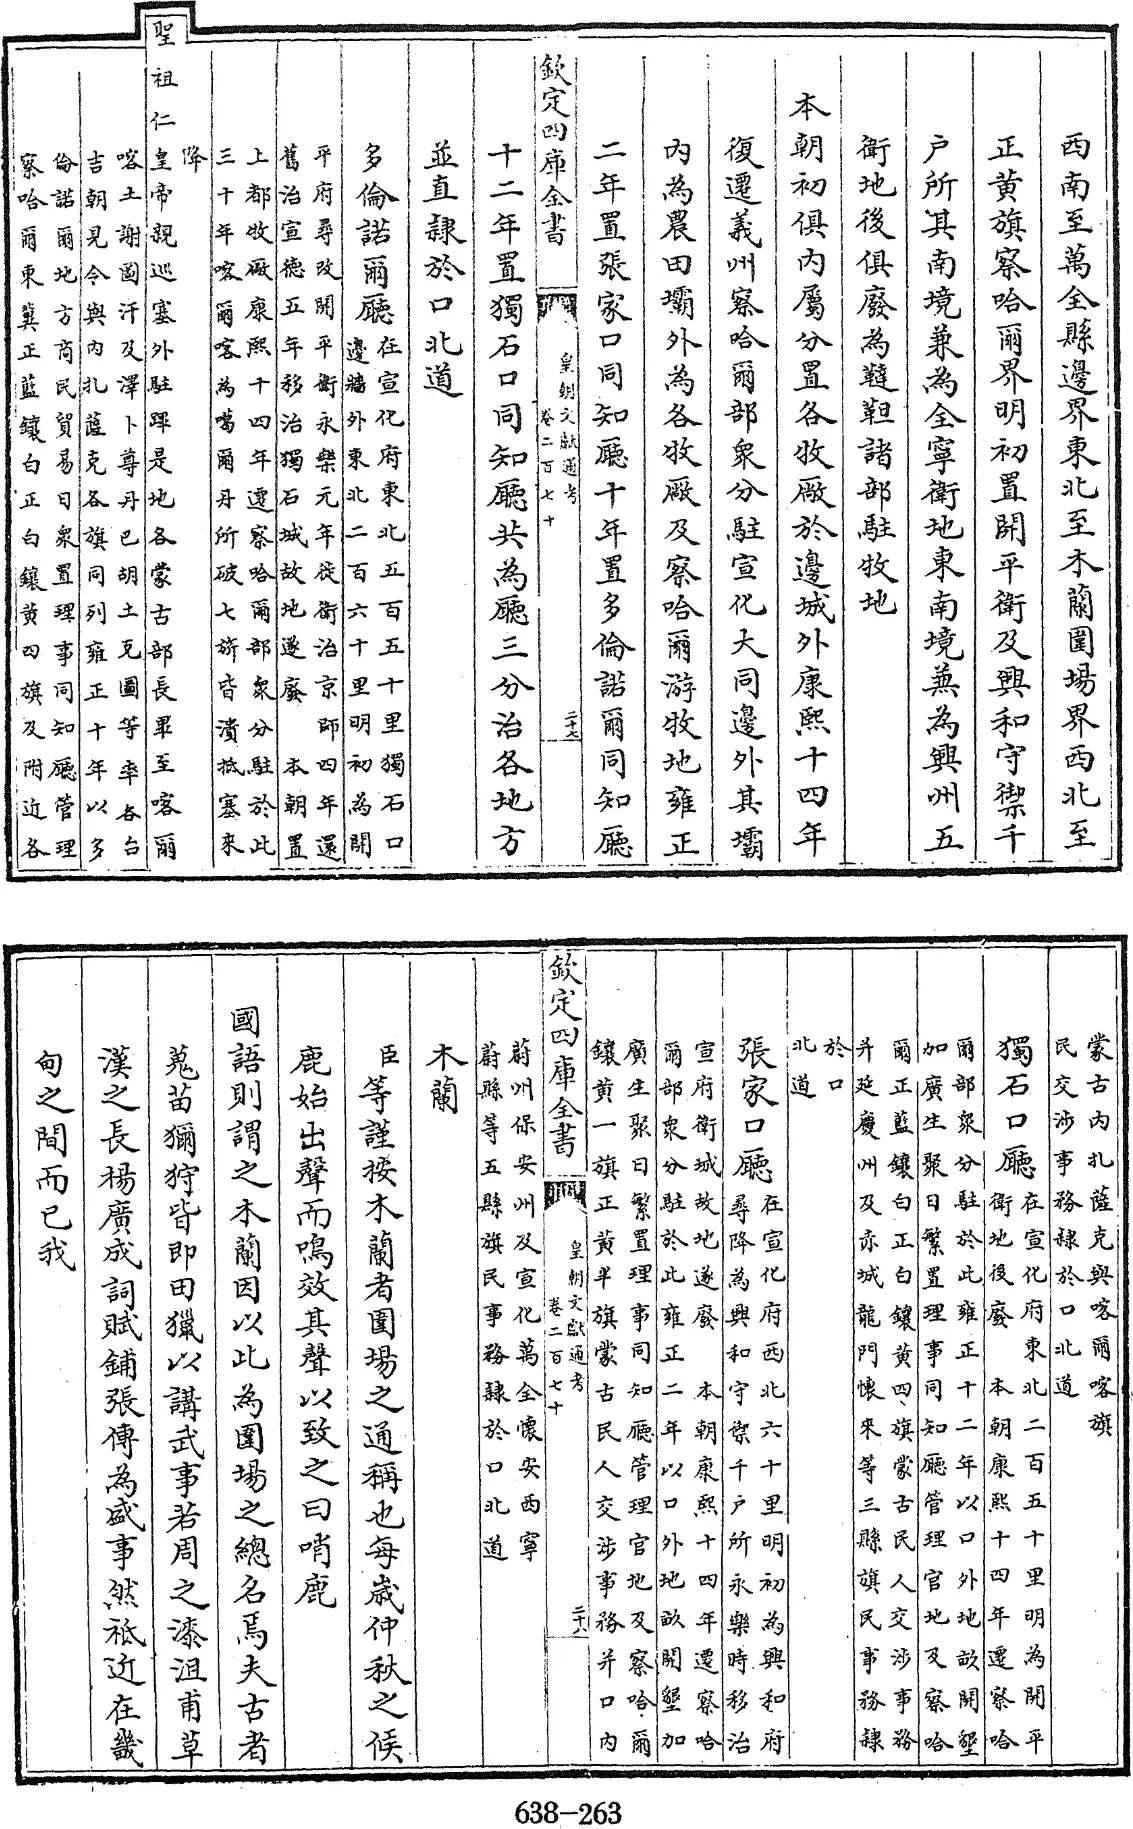 西南至萬全縣邊界東北至木蘭圍場界西北至
正黄旗察哈爾界明初置開平衛及興和守禦千
户所其南境兼為全寧衛地東南境兼為興州五
衛地後俱廢為韃靼諸部駐牧地
本朝初俱内屬分置各牧廠於邊城外康熙十四年
復遷義州察哈爾部衆分駐宣化大同邊外其壩
内為農田壩外為各牧廠及察哈爾游牧地雍正
二年置張家口同知廳十年置多倫諾爾同知廳
欽定四庫全書
皇朝文獻通考
卷二百七十
二十七
十二年置獨石口同知廳共為廳三分治各地方
並直隸於口北道
多倫諾爾廳
在宣化府東北五百五十里獨石口
邊牆外東北二百六十里明初為開
平府尋改開平衛永樂元年徙衛治京師四年還
舊治宣德五年移治獨石城故地遂廢 本朝置
上都牧廠康熙十四年遷察哈爾部衆分駐於此
三十年喀爾喀為噶爾丹所破七旂皆潰抵塞來
降
聖祖仁皇帝親巡塞外駐蹕是地各蒙古部長畢至喀爾
喀土謝圖汗及澤卜尊丹巴胡土克圖等率各台
吉朝見令與内扎薩克各旗同列雍正十年以多
倫諾爾地方商民貿易日衆置理事同知廳管理
察哈爾東冀正藍鑲白正白鑲黄四旗及附近各
蒙古内扎薩克與喀爾喀旗
民交涉事務隸於口北道
獨石口廳
在宣化府東北二百五十里明為開平
衛地後廢 本朝康熙十四年遷察哈
爾部衆分駐於此雍正十二年以口外地畝開墾
加廣生聚日繁置理事同知廳管理官地及察哈
爾正藍鑲白正白鑲黄四旗蒙古民人交涉事務
并延慶州及赤城龍門懷來等三縣旗民事務隸
於口
北道
張家口廳
在宣化府西北六十里明初為興和府
尋降為興和守禦千户所永樂時移治
宣府衛城故地遂廢 本朝康熙十四年遷察哈
爾部衆分駐於此雍正二年以口外地畝開墾加
廣生聚日繁置理事同知廳管理官地及察哈爾
鑲黄一旗正黄半旗蒙古民人交涉事務并口内
欽定四庫全書
皇朝文獻通考
卷二百七十
二十八
蔚州保安州及宣化萬全懷安西寧
蔚縣等五縣旗民事務隸於口北道
木蘭
臣等謹按木蘭者圍場之通稱也每歲仲秋之候
鹿始出聲而鳴效其聲以致之曰哨鹿
國語則謂之木蘭因以此為圍場之總名焉夫古者
蒐苗獮狩皆即田獵以講武事若周之漆沮甫草
漢之長楊廣成詞賦鋪張傳為盛事然祗近在畿
甸之間而已我
638-263